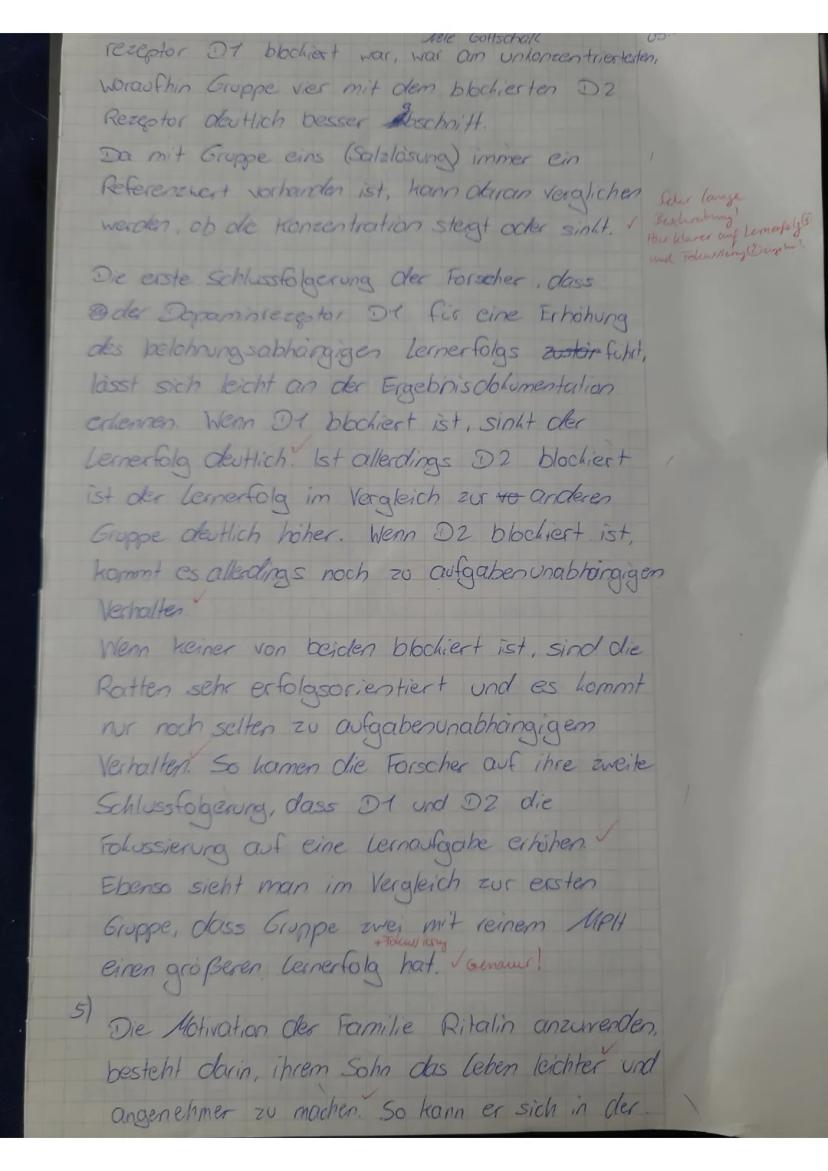 rezeptor D1 blockiert war, war am unkonzentriertesten,
woraufhin Gruppe vier mit dem blockierten D2
Rezeptor deutlich besser abschnitt.
Da mit Gruppe eins (Salzlösung) immer ein
Referenzwert vorhanden ist, kann daran verglichen
werden, ob die Konzentration steigt oder sinkt. ✓
Sehr lange
Beschreibung!
Hier klarer auf Lernerfolg
und Fokussierung
Die erste Schlussfolgerung der Forscher, dass
der Dopaminrezeptor D1 für eine Erhöhung
des belohnungsabhängigen Lernerfolgs führt,
lässt sich leicht an der Ergebnisdokumentation
erkennen. Wenn D1 blockiert ist, sinkt der
Lernerfolg deutlich. ✓ Ist allerdings D2 blockiert
ist der Lernerfolg im Vergleich zur anderen
Gruppe deutlich höher. Wenn D2 blockiert ist,
kommt es allerdings noch zu aufgabenunabhängigen
Verhalten. ✓
Wenn keiner von beiden blockiert ist, sind die
Ratten sehr erfolgsorientiert und es kommt
nur noch selten zu aufgabenunabhängigem
Verhalten. ✓ So kamen die Forscher auf ihre zweite
Schlussfolgerung, dass D1 und D2 die
Fokussierung auf eine Lernaufgabe erhöhen. ✓
Ebenso sieht man im Vergleich zur ersten
Gruppe, dass Gruppe zwei mit reinem MPH
+Fokussierung
einen größeren Lernerfolg hat. ✓ Genauer!
5)
Die Motivation der Familie Ritalin anzuwenden,
besteht darin, ihrem Sohn das Leben leichter ✓ und
angenehmer zu machen. ✓ So kann er sich in der